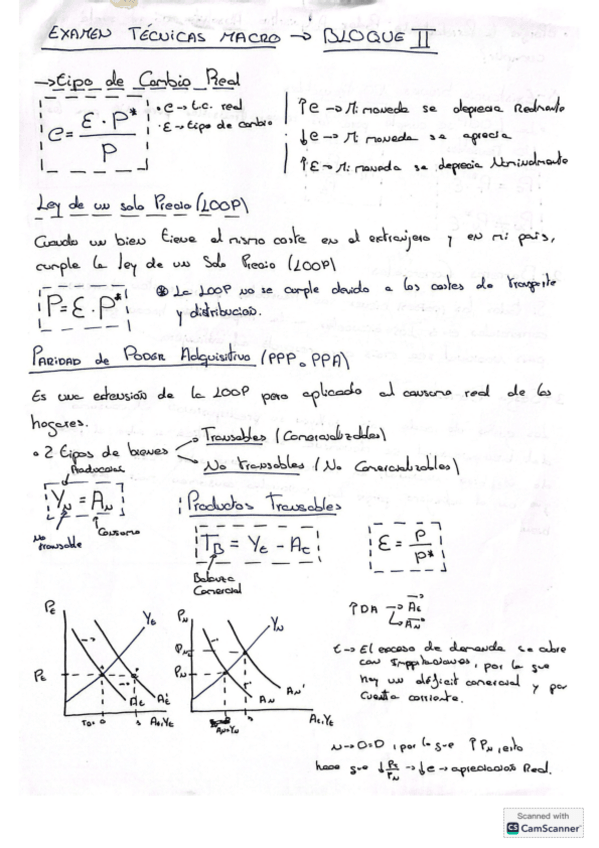 EXAMEN TÉCNICAS MACRO → BLOQUE II
→ tipo de Cambio Real
e = E · P* / P
• e → t.c. real
• E → tipo de cambio
↑e → Mi moneda se deprecia Realmente
↓e → Mi moneda se aprecia
↑E → Mi moneda se deprecia Nominalmente
Ley de un solo Precio (LOOP)
Cuando un bien tiene el mismo coste en el extranjero y en mi país,
cumple la ley de un Solo Precio (LOOP)
P = E · P*
La LOOP no se cumple devido a los costes de Transporte
y distribucion.
PARIDAD de PODER Adquisitivo (PPP o PPA)
Es una extensión de la LOOP pero aplicado al consumo real de los
hogares.
• 2 tipos de bienes
Transables (Comercializables)
No transables (No Comercializables)
YN = AN
No transable
Consumo
Productos Transables
TB = Yt - At
Balanza
Comercial
E = P / P*
Pt
Yt
Pt
At
At'
At, Yt
PN
YN
PN
AN
AN'
At, Yt
↑DA → At
AN
t → El exceso de demanda se cubre
con Importaciones, por lo que
hay un déficit comercial y por
cuenta corriente.
N → O=D, por lo que ↑PN, esto
hace que ↓ Pt / PN → ↓e → apreciacion Real.
Scanned with
CS CamScanner